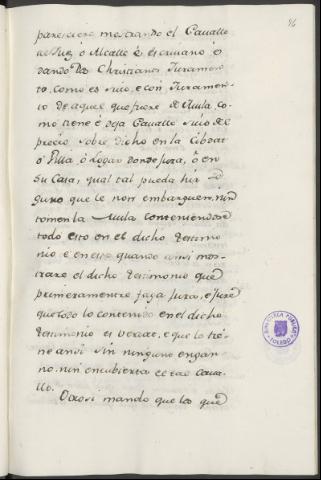 96
paresciere mostrando el Cavallo
al Juez ó Alcalle è escrivano ó
dando dos Christianos Juramen
to. como es suio, e con Juramen
to de aquel que fuere de Mula, co
mo tiene è deja Cavallo suio del
precio sobre dicho en la Cibdat
ó Villa ó Logar donde fuera, ó en
su Casa, qual tal pueda hir se
guro que le non embarguen, nin
tomen la Mula conteniendose
todo esto en el dicho testimo
nio e en esto quando ansi mos
trare el dicho testimonio que
primeramente faga jura, e jure
que todo lo contenido en el dicho
testimonio es verdat, e que lo tie
ne ansi sin ninguno engan
no, nin encubierta el tal Cava
llo.
Otrosi mando que los que
BIBLIOTECA PUBLICA
TOLEDO